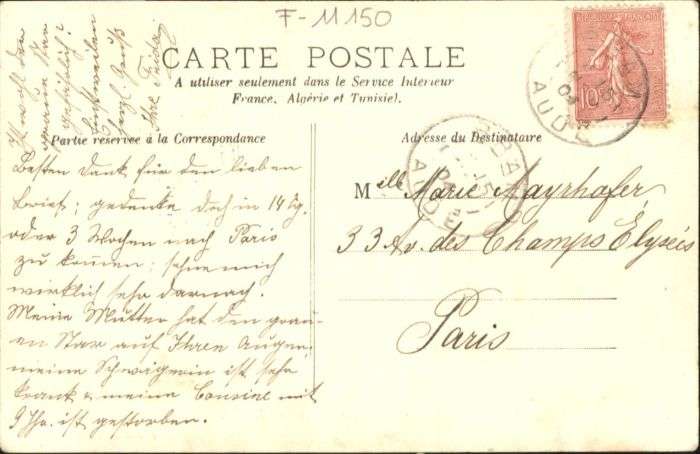 F-11150
CARTE POSTALE
A utiliser seulement dans le Service Intérieur
France, Algérie et Tunisie).
Partie réservée à la Correspondance
Adresse du Destinataire
Besten Dank für den lieben
Brief; gedenke doch in 14 Tg.
oder 3 Wochen nach Paris
zu kommen; sehne mich
wirklich sehr darnach.
Meine Mutter hat den grau-
en Star auf Ihren Augen,
meine Schwägerin ist sehr
krank & meine Cousine mit
9 Jhr. ist gestorben.
Ist
grüne Star
gefährlich?
Einstweilen
herzl. Gruß
Ihre Frida
Mlle Marie Mayrhofer
33 Av. des Champs Élysées
Paris
REPUBLIQUE FRANÇAISE
10c
AUDE
AUDE